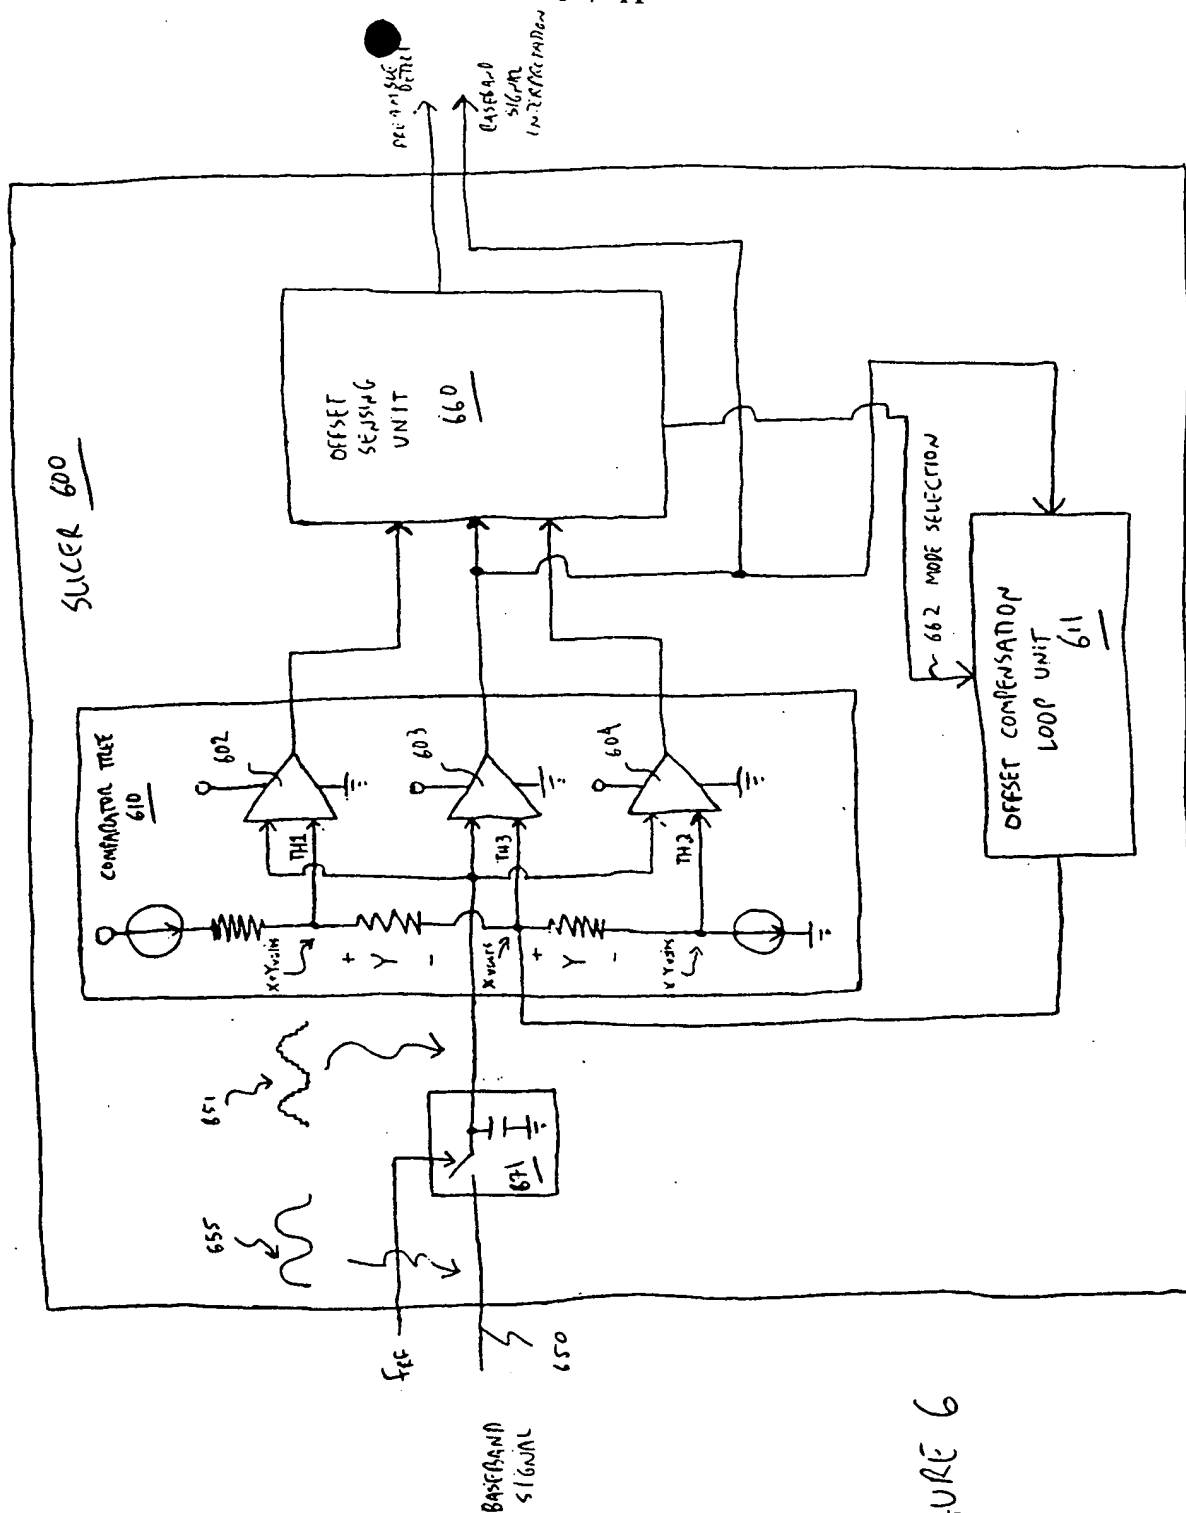 SLICER 600
PREAMBLE
DETECT
BASEBAND
SIGNAL
INTERPRETATION
OFFSET
SENSING
UNIT
660
662 MODE SELECTION
OFFSET COMPENSATION
LOOP UNIT
611
COMPARATOR TREE
610
602
603
604
TH1
TH3
TH2
X+Y VOLTS
+
Y
-
X VOLTS
+
Y
-
651
655
671
fRF
650
BASEBAND
SIGNAL
URE 6